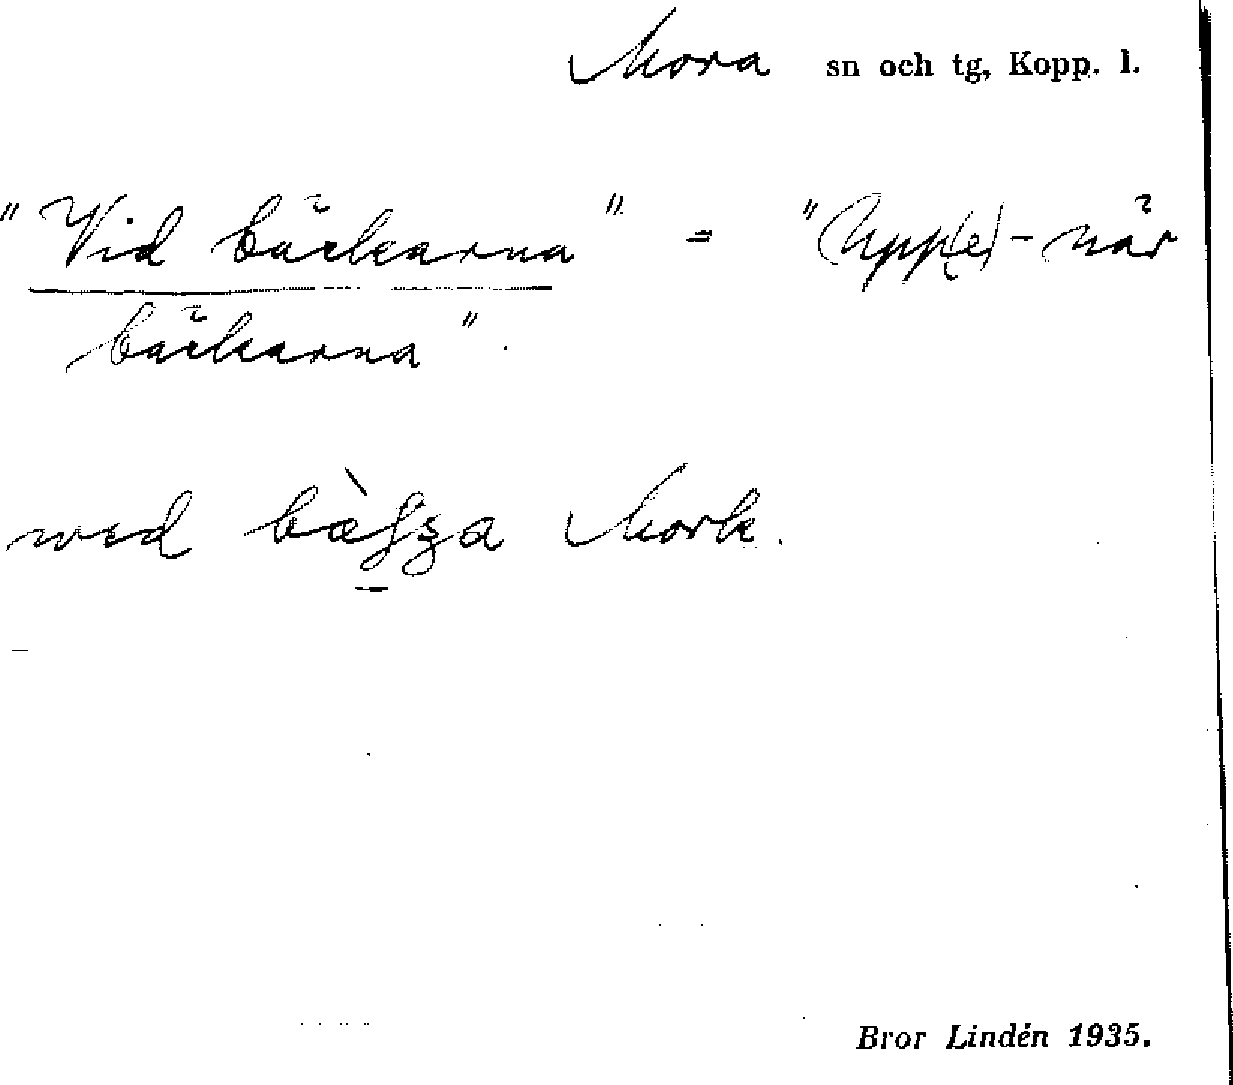 Mora sn och tg, Kopp. l.
"Vid bäckarna" = "Upp(e)-när
bäckarna".
Mork.
Bror Lindén 1935.